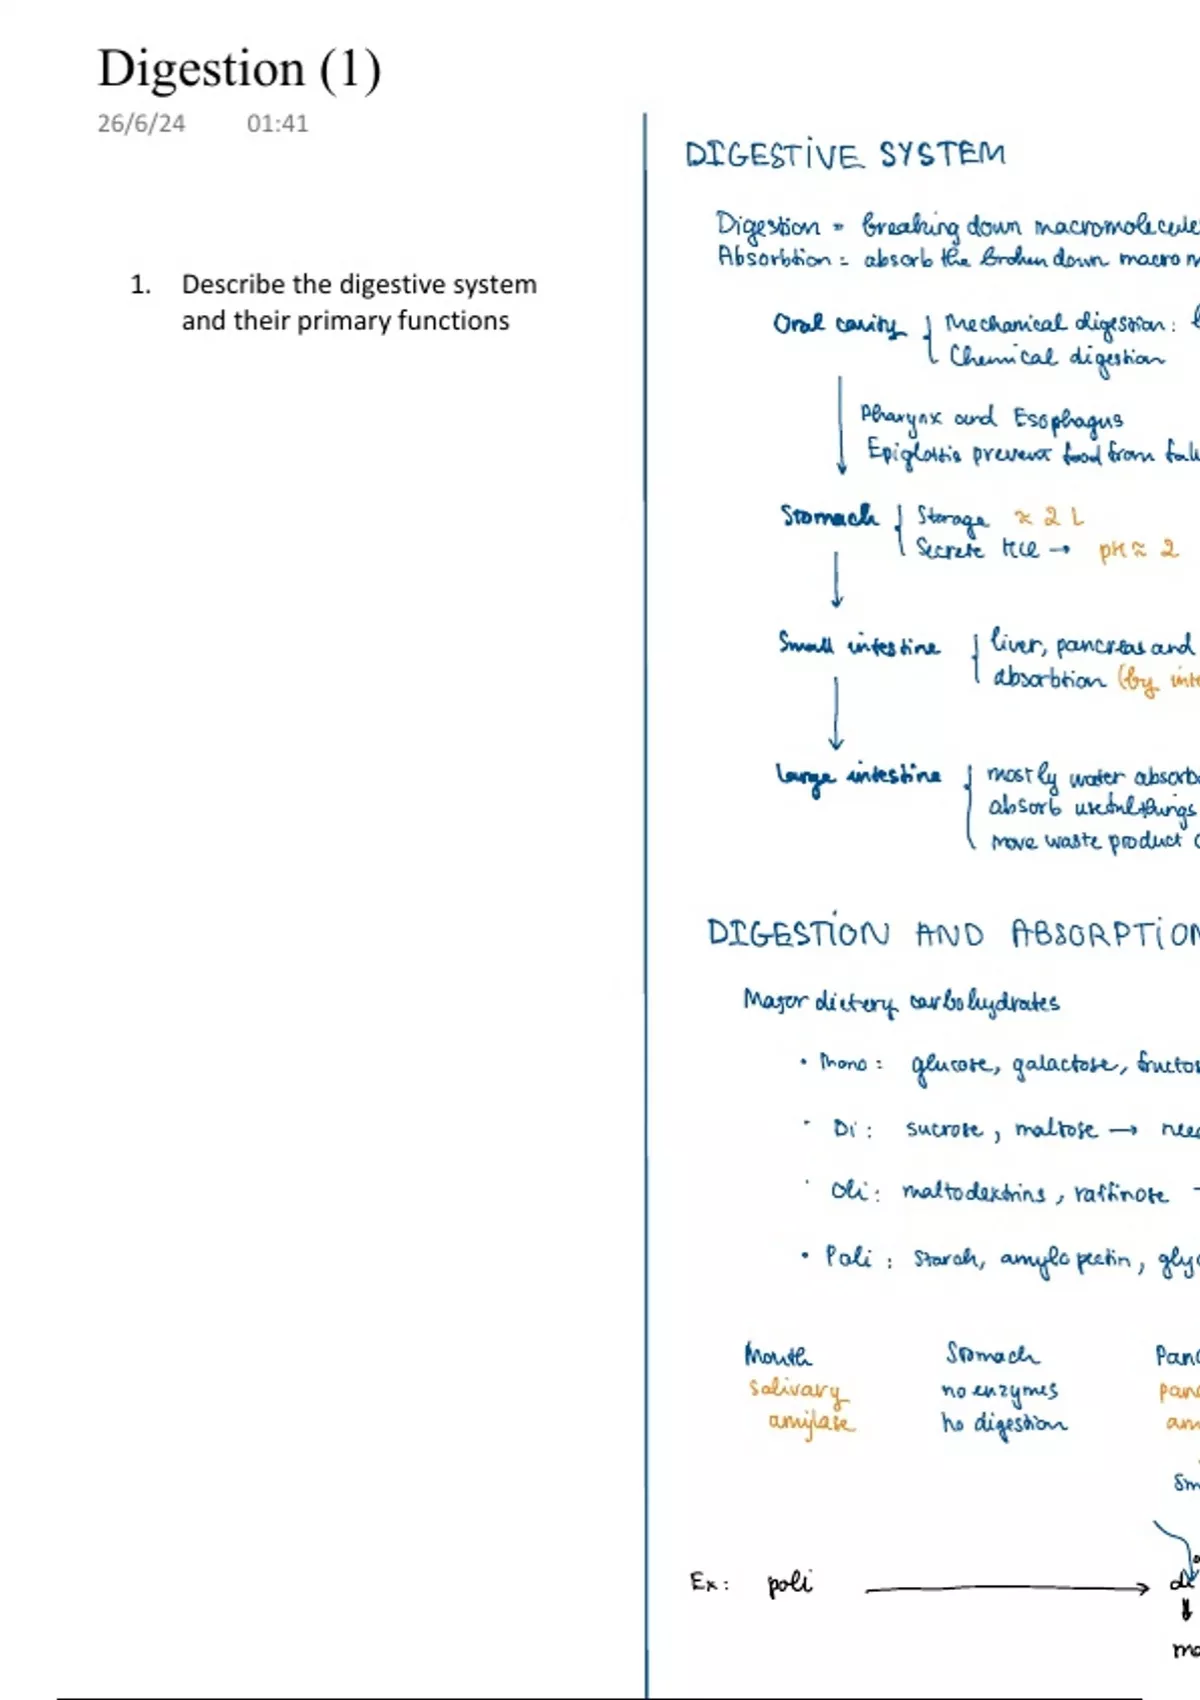 Digestion (1)
26/6/24 01:41
1. Describe the digestive system
and their primary functions
DIGESTIVE SYSTEM
Digestion = breaking down macromolecule
Absorbtion = absorb the broken down macro m
Oral cavity { Mechanical digestion:
Chemical digestion
Pharynx and Esophagus
Epiglottis prevent food from fall
Stomach { Storage ≈ 2 L
Secrete HCl → pH ≈ 2
Small intestine { liver, pancreas and
absorbtion (by inte
Large intestine { mostly water absorb
absorb useful things
move waste product
DIGESTION AND ABSORPTION
Major dietery carbohydrates
• Mono: glucose, galactose, fructos
• Di: sucrose, maltose → nee
• Oli: maltodextrins, raffinose -
• Poli: Starch, amylopectin, glyc
Mouth Stomach Panc
salivary no enzymes panc
amylase no digestion am
Sm
Ex: poli → di
mo